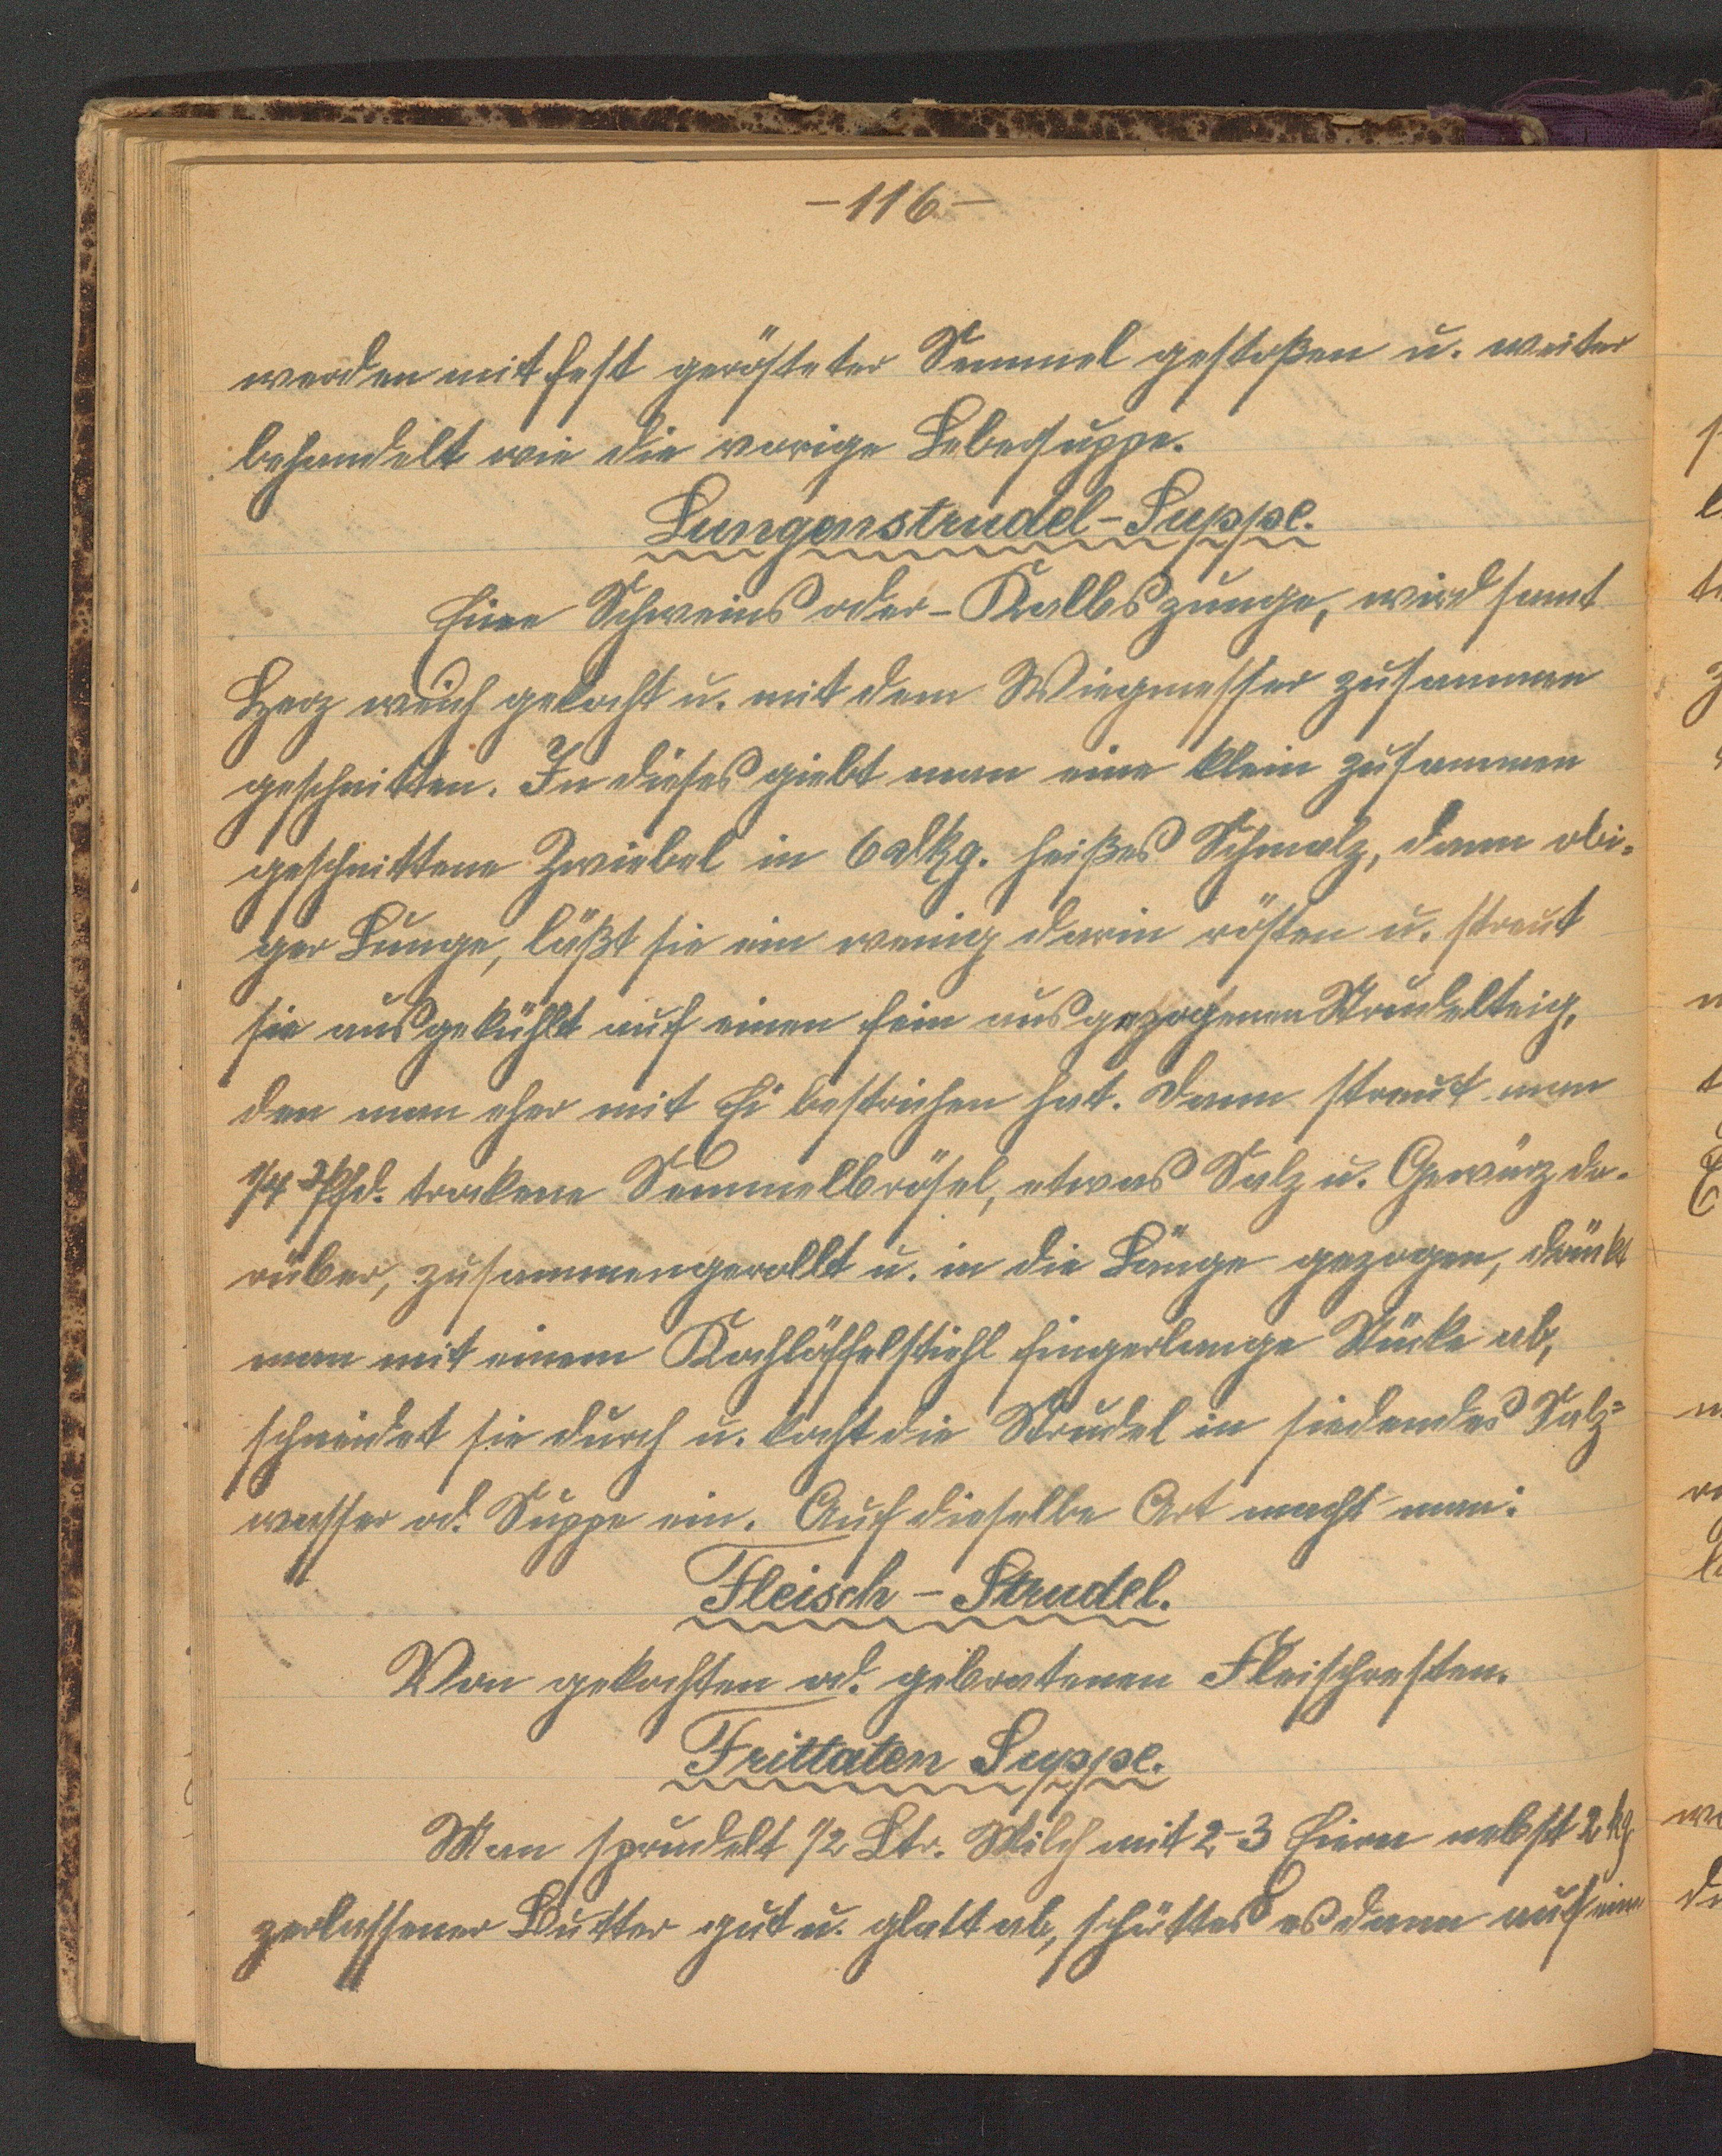 –116–
werden mit fest gerösteter Semmel gestoßen u. weiter
behandelt wie die vorige Lebersuppe.
Lungenstrudel-Suppe.
Eine Schweins oder-Kalbszunge, wird samt
Herz weich gekocht u. mit dem Wiegmesser zusammen
geschnitten. In dieses giebt man eine klein zusammen
geschnittene Zwiebel in 6 dkg. heißes Schmalz, dann obi=
ger Lunge, läßt sie ein wenig darin rösten u. streut
sie ausgekühlt auf einen fein ausgezogenen Strudelteig,
den man eher mit Ei bestrichen hat. Dann streut man
1/4 Pfd. trockene Semmelbrösel, etwas Salz u. Gewürz da-
rüber, zusammengerollt u. in die Länge gezogen, drückt
man mit einem Kochlöffelstiehl fingerlange Stücke ab,
schneidet sie durch u. kocht die Strudel in siedendes Salz=
wasser od. Suppe ein. Auf dieselbe Art macht man:
Fleisch-Strudel.
Von gekochten od. gebratenen Fleischresten.
Frittaten Suppe.
Man sprudelt 1/2 Ltr. Milch mit 2-3 Eiern nebst 2 kg
zerlassener Butter gut u. glatt ab, schüttes es dann auf eine